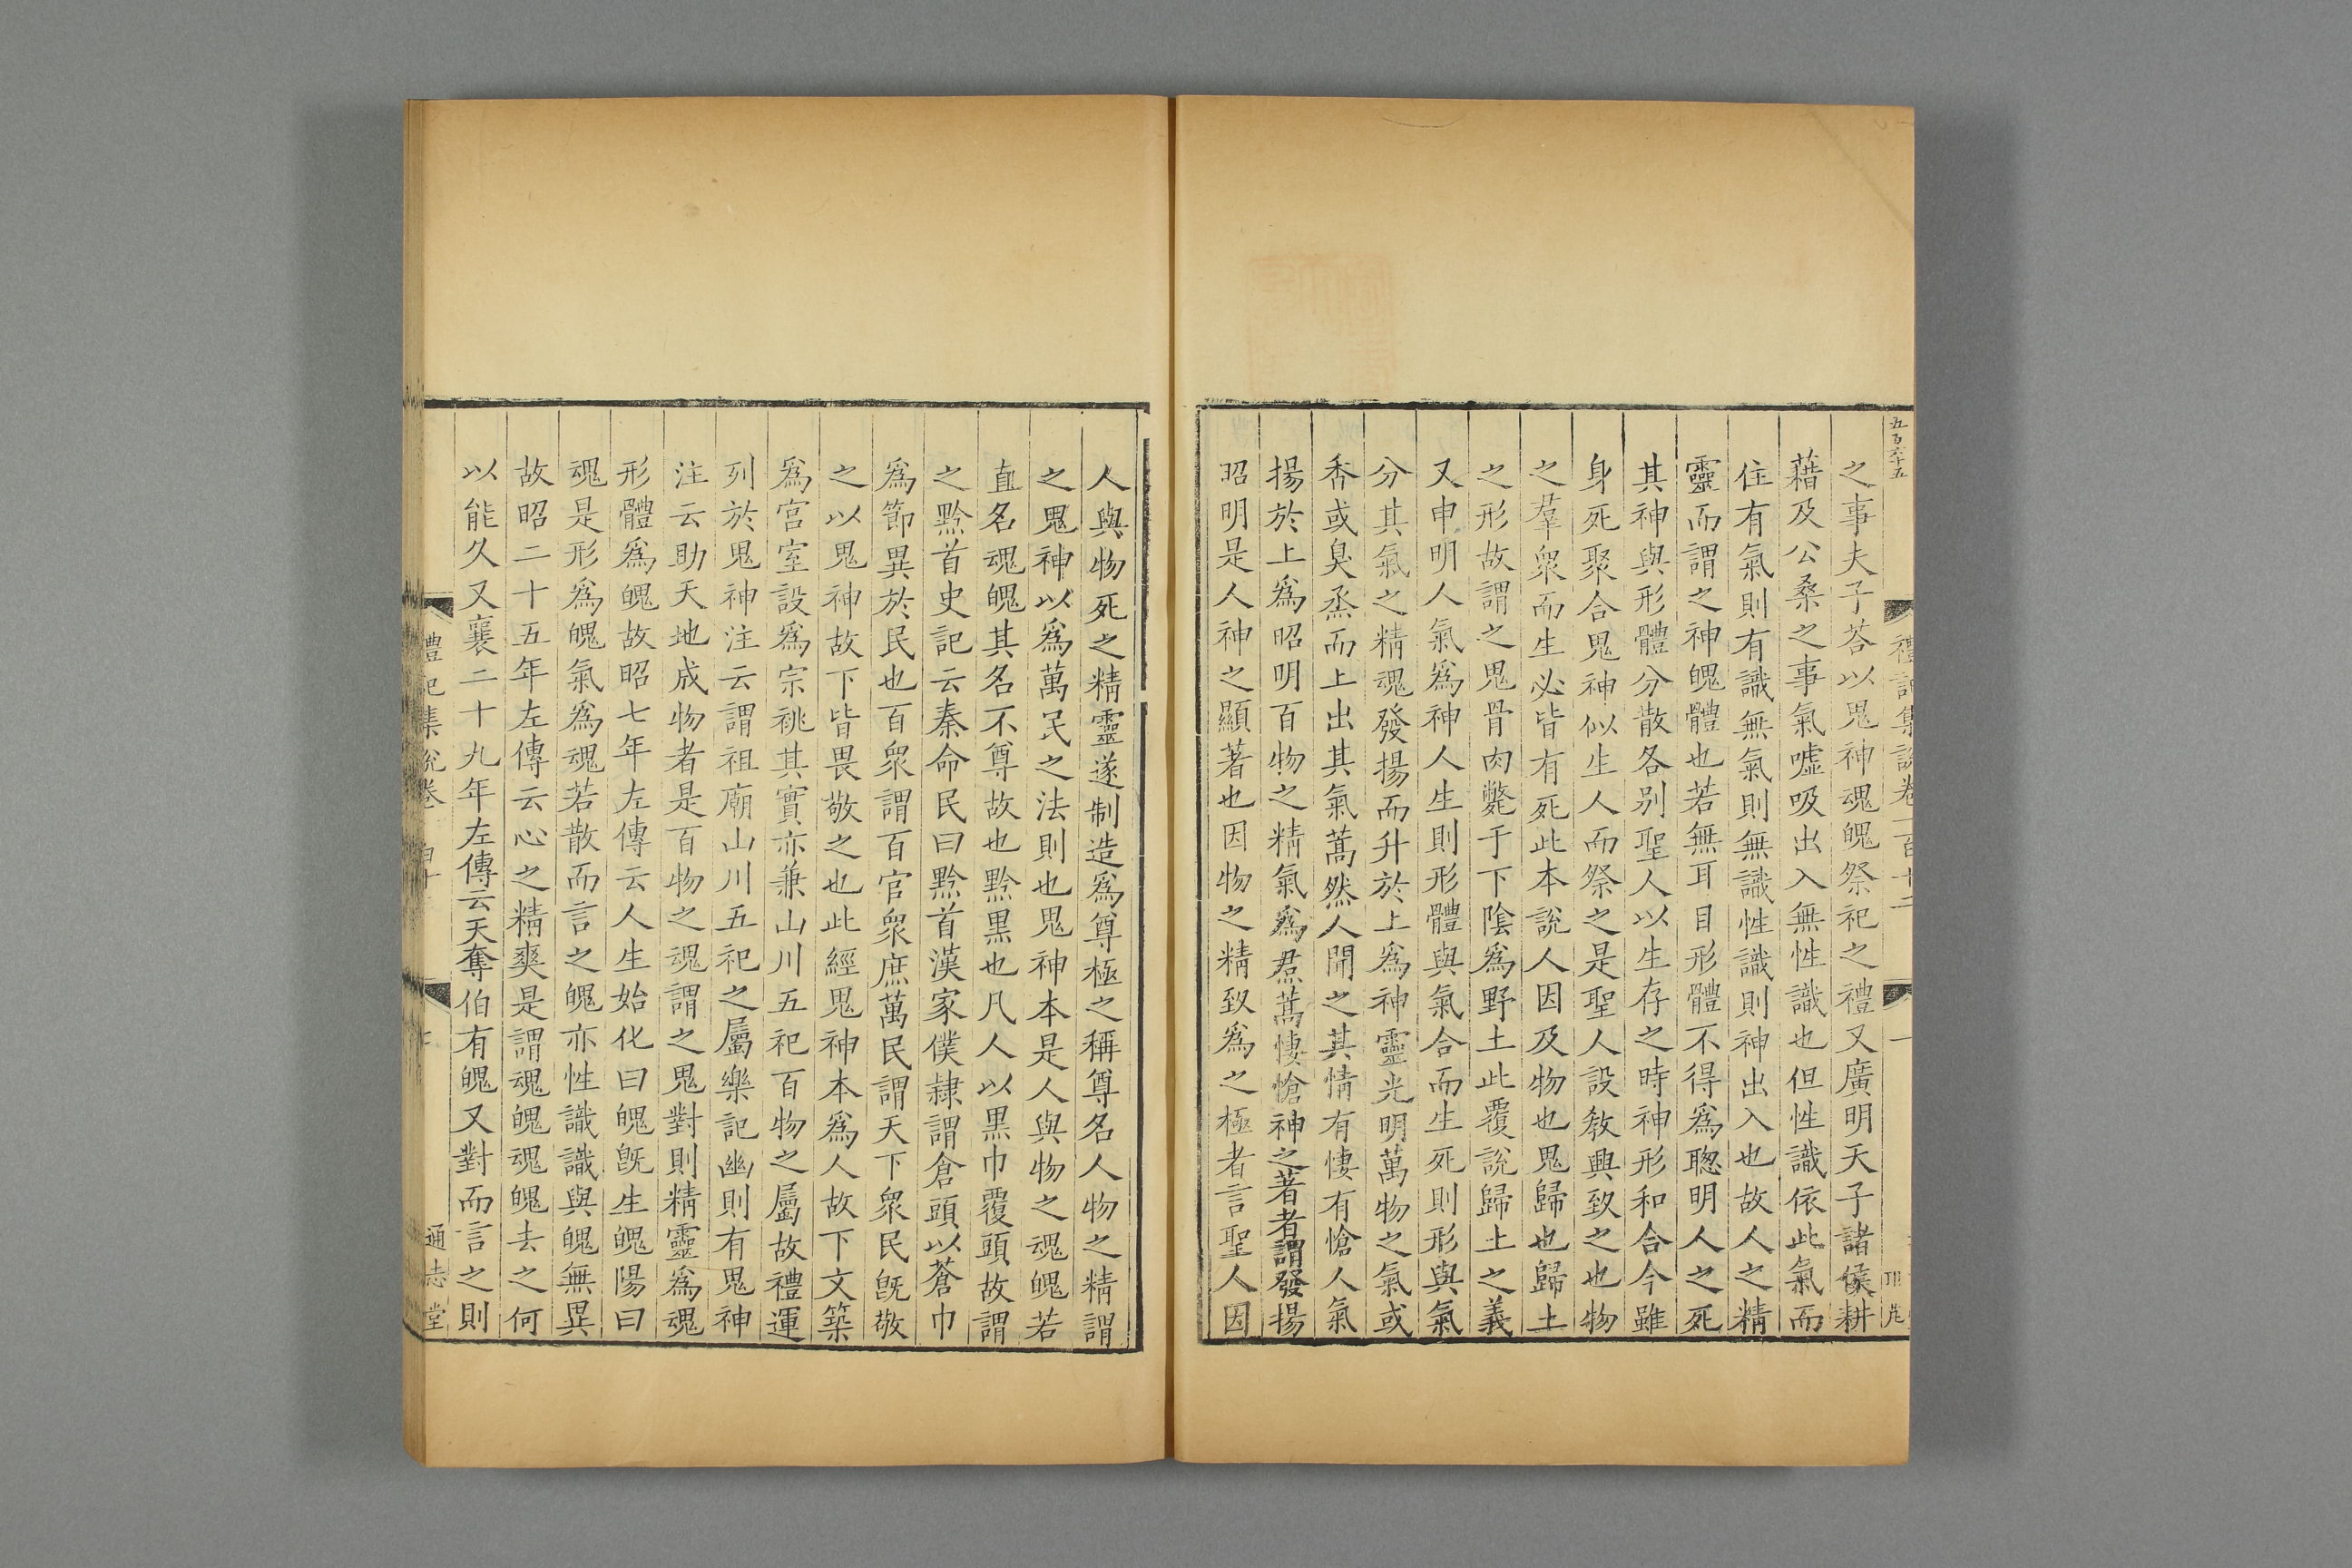 五百六十五
禮記集說卷一百十二
一
之事夫子荅以鬼神魂魄祭祀之禮又廣明天子諸侯耕
藉及公桑之事氣噓吸出入無性識也但性識依此氣而
住有氣則有識無氣則無識性識則神出入也故人之精
靈而謂之神魄體也若無耳目形體不得爲聰明人之死
其神與形體分散各别聖人以生存之時神形和合今雖
身死聚合鬼神似生人而祭之是聖人設敎興致之也物
之羣衆而生必皆有死此本說人因及物也鬼歸也歸土
之形故謂之鬼骨肉斃于下陰爲野土此覆說歸土之義
又申明人氣爲神人生則形體與氣合而生死則形與氣
分其氣之精魂發揚而升於上爲神靈光明萬物之氣或
香或臭烝而上出其氣蒿然人聞之其情有悽有愴人氣
揚於上爲昭明百物之精氣爲焄蒿悽愴神之著者謂發揚
昭明是人神之顯著也因物之精致爲之極者言聖人因
人與物死之精靈遂制造爲尊極之稱尊名人物之精謂
之鬼神以爲萬民之法則也鬼神本是人與物之魂魄若
直名魂魄其名不尊故也黔黑也凡人以黑巾覆頭故謂
之黔首史記云秦命民曰黔首漢家僕隷謂倉頭以蒼巾
爲節異於民也百衆謂百官衆庶萬民謂天下衆民旣敬
之以鬼神故下皆畏敬之也此經鬼神本爲人故下文築
爲宫室設爲宗祧其實亦兼山川五祀百物之屬故禮運
列於鬼神注云謂祖廟山川五祀之屬樂記幽則有鬼神
注云助天地成物者是百物之魂謂之鬼對則精靈爲魂
形體爲魄故昭七年左傳云人生始化曰魄旣生魄陽曰
魂是形爲魄氣爲魂若散而言之魄亦性識識與魄無異
故昭二十五年左傳云心之精爽是謂魂魄魂魄去之何
以能久又襄二十九年左傳云天奪伯有魄又對而言之則
禮記集說卷
通志堂